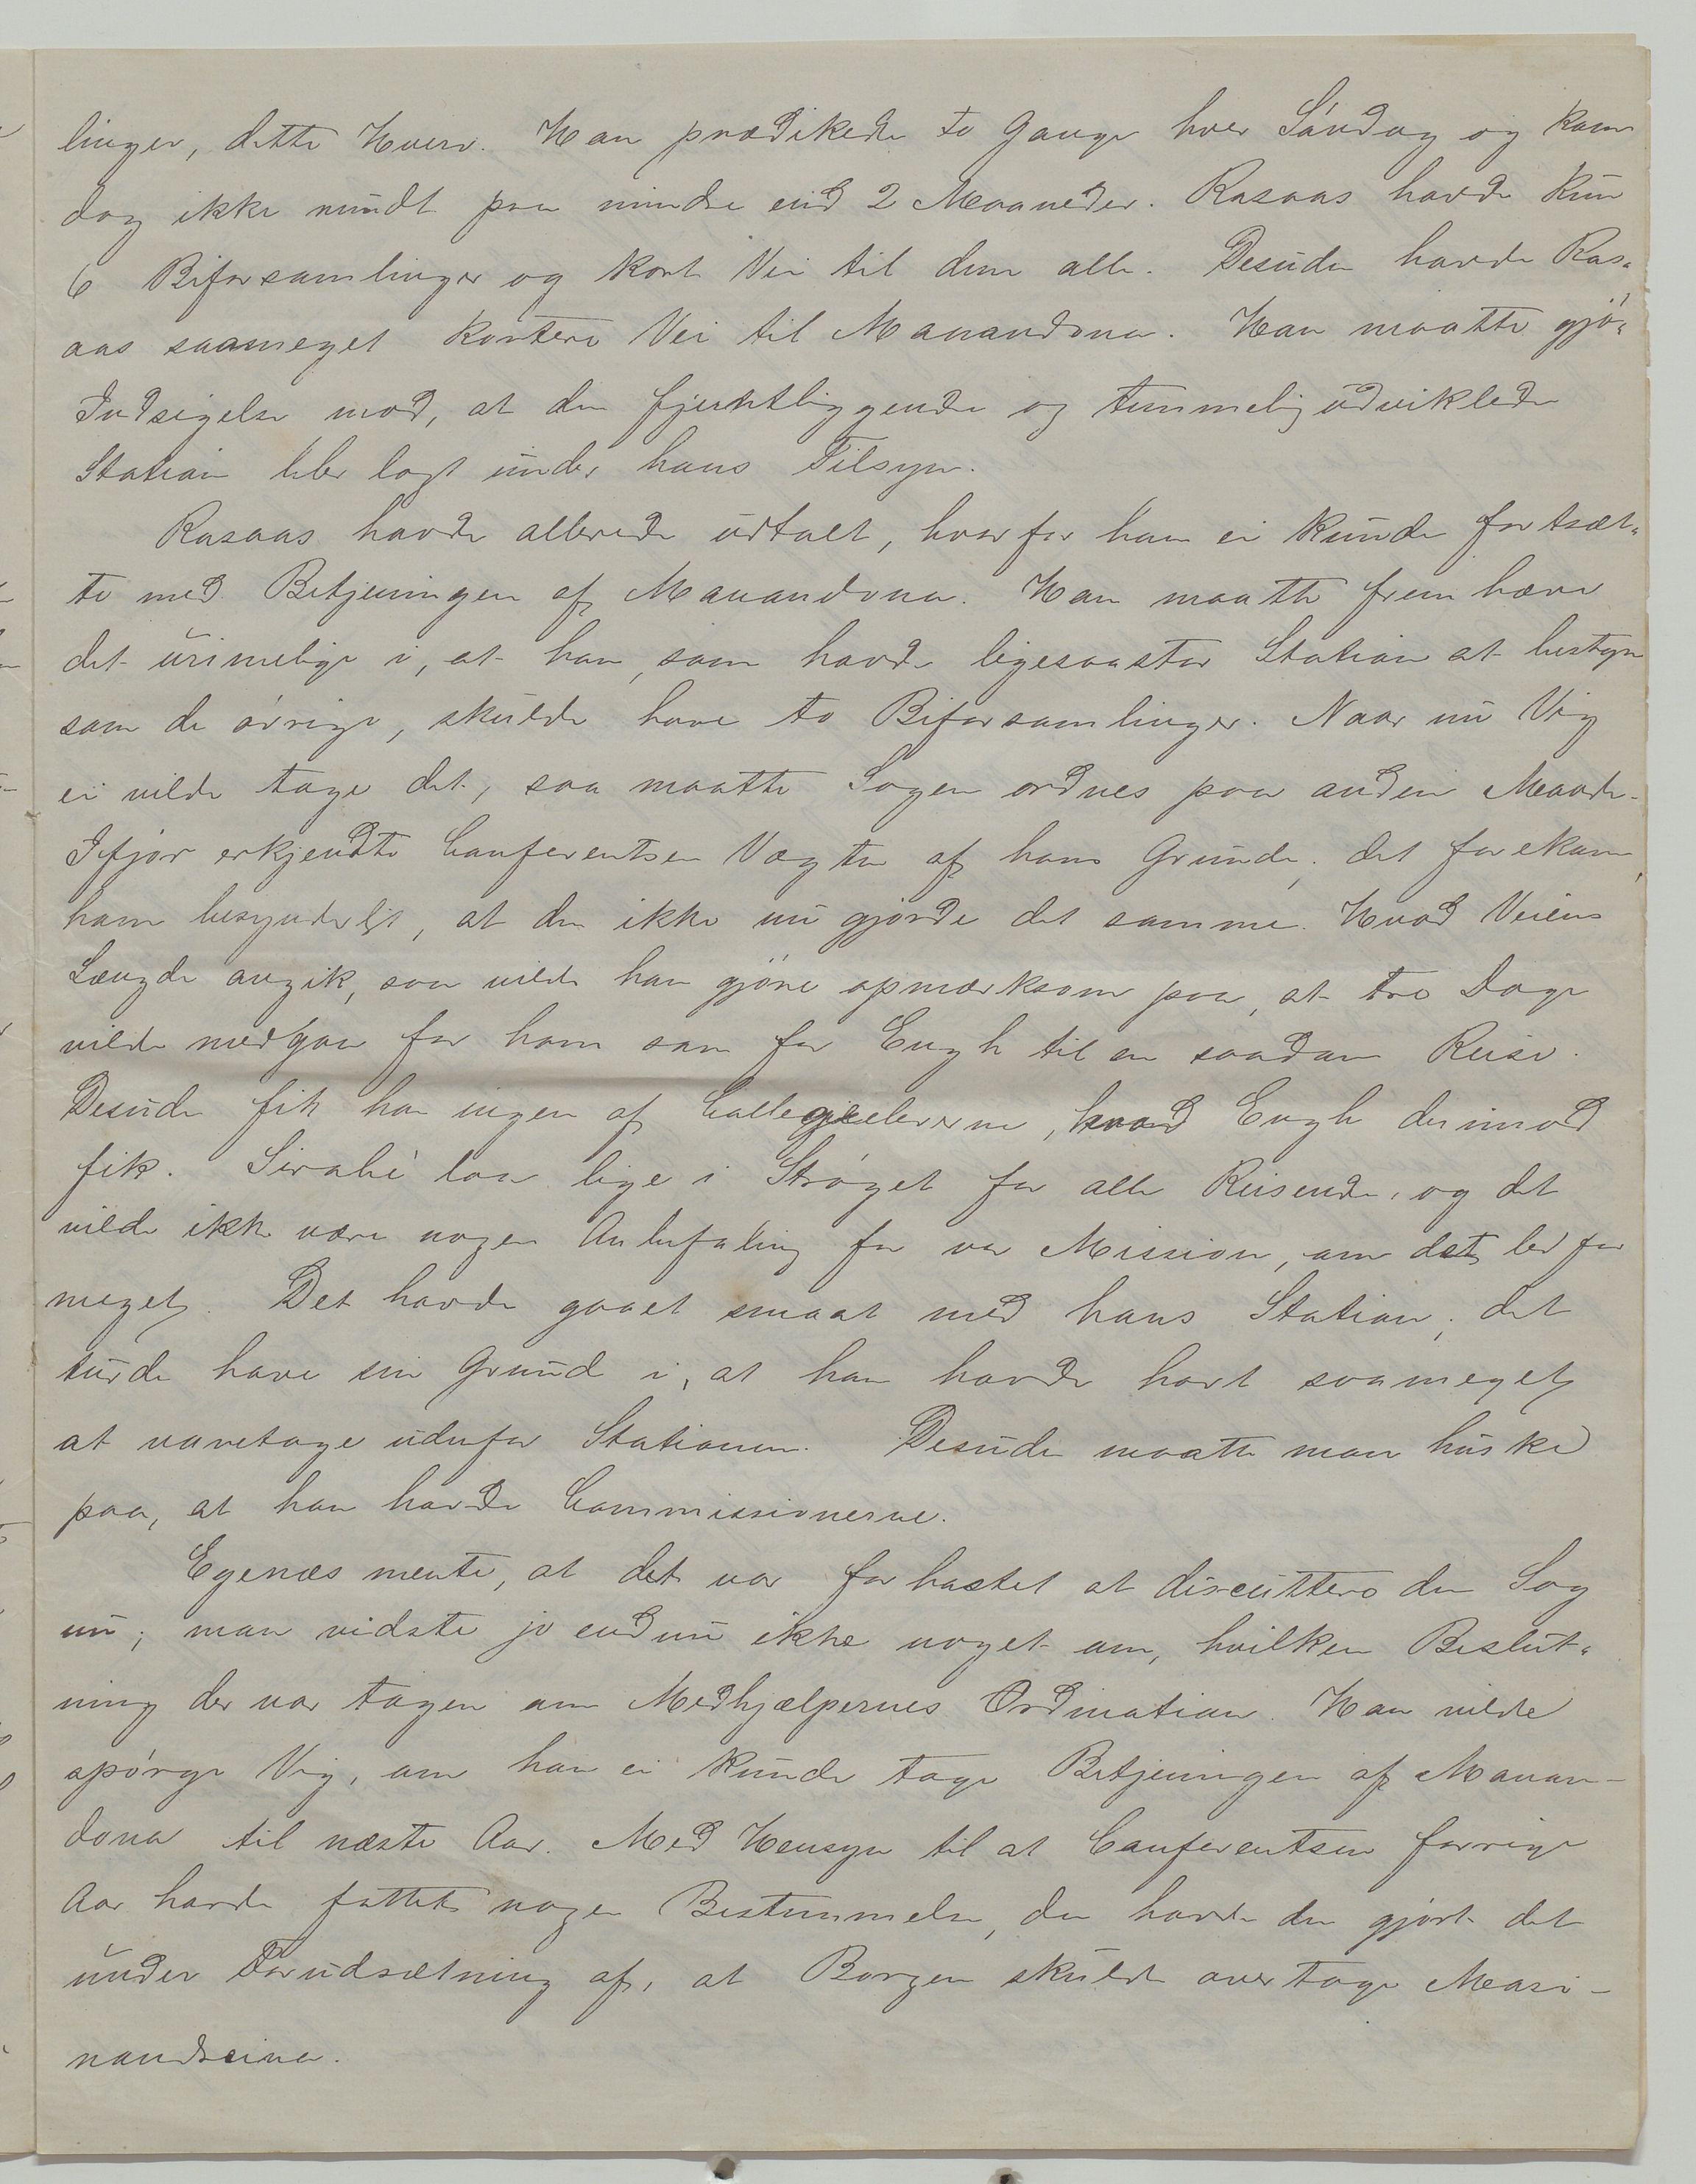 linger, dette Hverv. Han prædikede to Gange hver Søndag og kom
dog ikke rundt paa mindre end 2 Maaneder. Rasaas havde kun
6 Biforsamlinger og kort Vei til dem alle. Desuden havde Ras-
aas saameget kortere Vei til Manandona. Han maatte gjø-
Indsigelse mod, at den fjerntliggende og temmelig udviklede
Station blev lagt under hans Tilsyn.
Rasaas havde allerede udtalt, hvorfor han ei kunde fortsæt-
te med Betjeningen af Manandona. Han maatte fremhæve
det urimelige i, at han, som havde ligesaastor Station at bestyre
som de øvrige, skulde have to Biforsamlinger. Naar nu Vig
ei vilde tage det, saa maatte Sagen ordnes paa anden Maade.
Ifjor erkjendte Conferentsen Vægten af hans Grunde; det forekom
ham besynderligt, at den ikke nu gjorde det samme. Hvad Veiens
Længde angik, saa vilde han gjøre opmærksom paa, at tre Dage
vilde medgaa for ham som for Engh til en saadan Reise.
Desuden fik han ingen af Collegieeleverne, hvad Engh derimod
fik. Sirabè laa lige i Strøget for alle Reisende, og det
vilde ikke være nogen Anbefaling for vor Mission, om det led for
meget. Det havde gaaet smaat med hans Station; det
turde have sin Grund i, at han havde havt saameget
at varetage udenfor Stationen. Desuden maatte man huske
paa, at han havde Commissionerne.
Egenæs mente, at det var forhastet at discuttere den Sag
nu; man vidste jo endnu ikke noget om, hvilken Beslut-
ning der var tagen om Medhjælpernes Ordination. Han vilde
spørge Vig, om han ei kunde tage Betjeningen af Manan-
dona til næste Aar. Med Hensyn til at Conferentsen forrige
Aar havde fattet nogen Bestemmelse, da havde den gjort det
under Forudsætning af, at Borgen skulde overtage Masi-
nandreina.